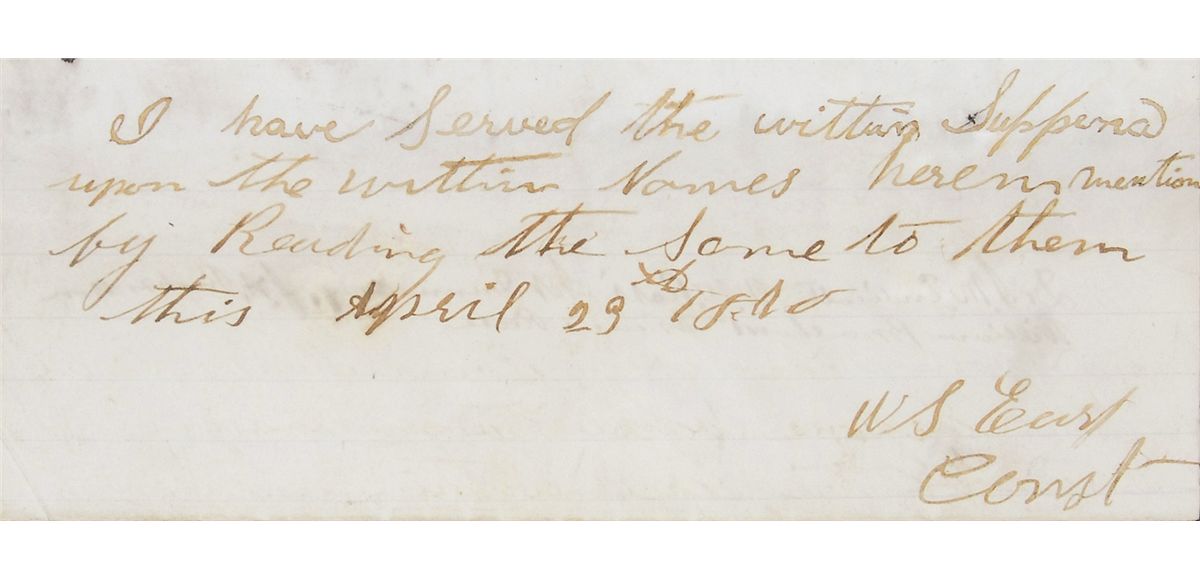 I have Served the within Suppena
upon the within Names herein mention
by Reading the Same to them
this April 29
W S East
Const